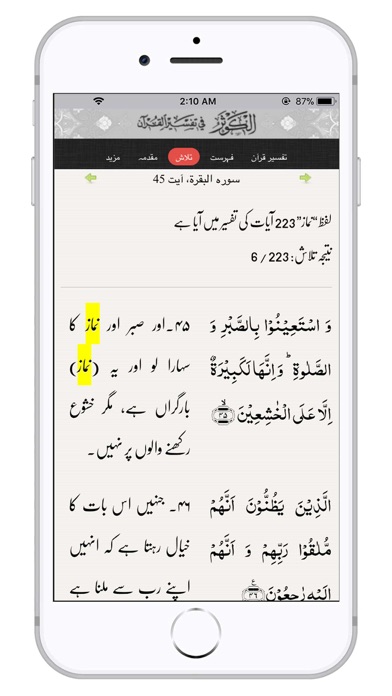 2:10 AM 87%
الکوثر فی تفسیر القرآن
تفسیر قرآن فہرست تلاش مقدمہ مزید
سورہ البقرۃ، آیت 45
لفظ "نماز" 223 آیات کی تفسیر میں آیا ہے
نتیجہ تلاش: 223 / 6
وَ اسۡتَعِیۡنُوۡا بِالصَّبۡرِ وَ
الصَّلٰوۃِ ؕ وَ اِنَّہَا لَکَبِیۡرَۃٌ
اِلَّا عَلَی الۡخٰشِعِیۡنَ ﴿ۙ۴۵﴾
۴۵۔اور صبر اور نماز کا
سہارا لو اور یہ (نماز)
بارگراں ہے، مگر خشوع
رکھنے والوں پر نہیں۔
الَّذِیۡنَ یَظُنُّوۡنَ اَنَّہُمۡ
مُّلٰقُوۡا رَبِّہِمۡ وَ اَنَّہُمۡ
اِلَیۡہِ رٰجِعُوۡنَ ﴿٪۴۶﴾
۴۶۔ جنہیں اس بات کا
خیال رہتا ہے کہ انہیں
اپنے رب سے ملنا ہے